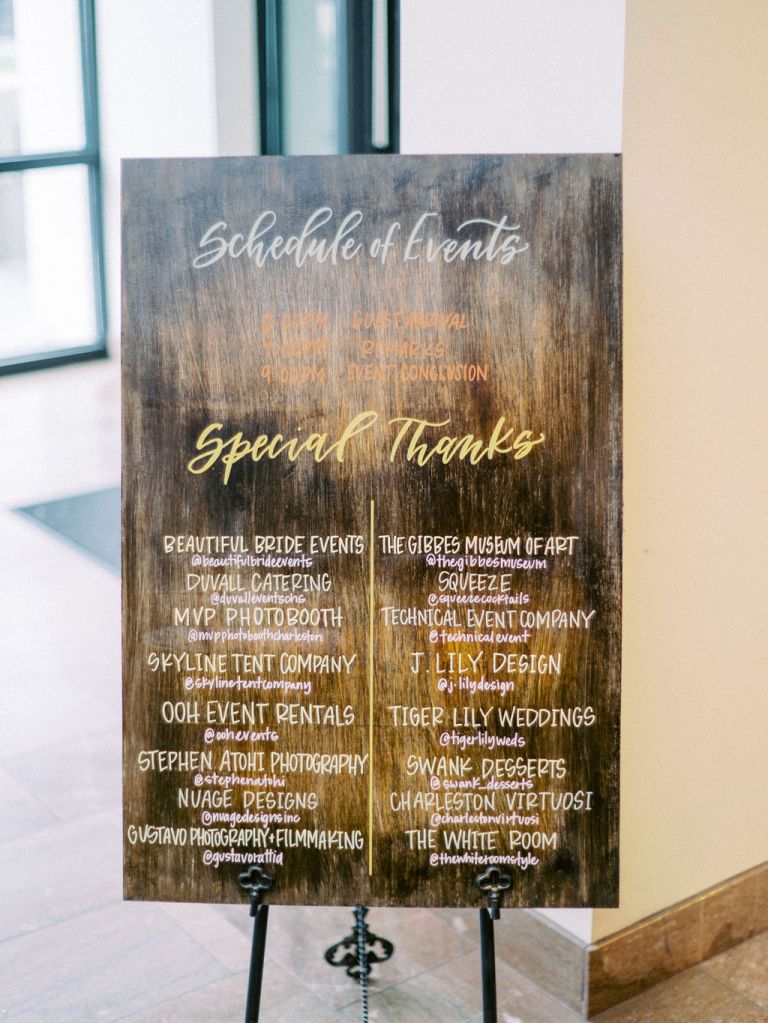 Schedule of Events
GUEST ARRIVAL
REMARKS
EVENT CONCLUSION
Special Thanks
BEAUTIFUL BRIDE EVENTS
@beautifulbrideevents
DUVALL CATERING
@duvalleventschs
MVP PHOTOBOOTH
@mvpphotoboothcharleston
SKYLINE TENT COMPANY
@skylinetentcompany
OOH EVENT RENTALS
@oohevents
STEPHEN ATOHI PHOTOGRAPHY
@stephenatohi
NUAGE DESIGNS
@nuagedesignsinc
GUSTAVO PHOTOGRAPHY+FILMMAKING
@gustavorattia
THE GIBBES MUSEUM OF ART
@thegibbesmuseum
SQUEEZE
@squeezecocktails
TECHNICAL EVENT COMPANY
@technicalevent
J. LILY DESIGN
@j.lilydesign
TIGER LILY WEDDINGS
@tigerlilyweds
SWANK DESSERTS
@swank_desserts
CHARLESTON VIRTUOSI
@charlestonvirtuosi
THE WHITE ROOM
@thewhiteroomstyle